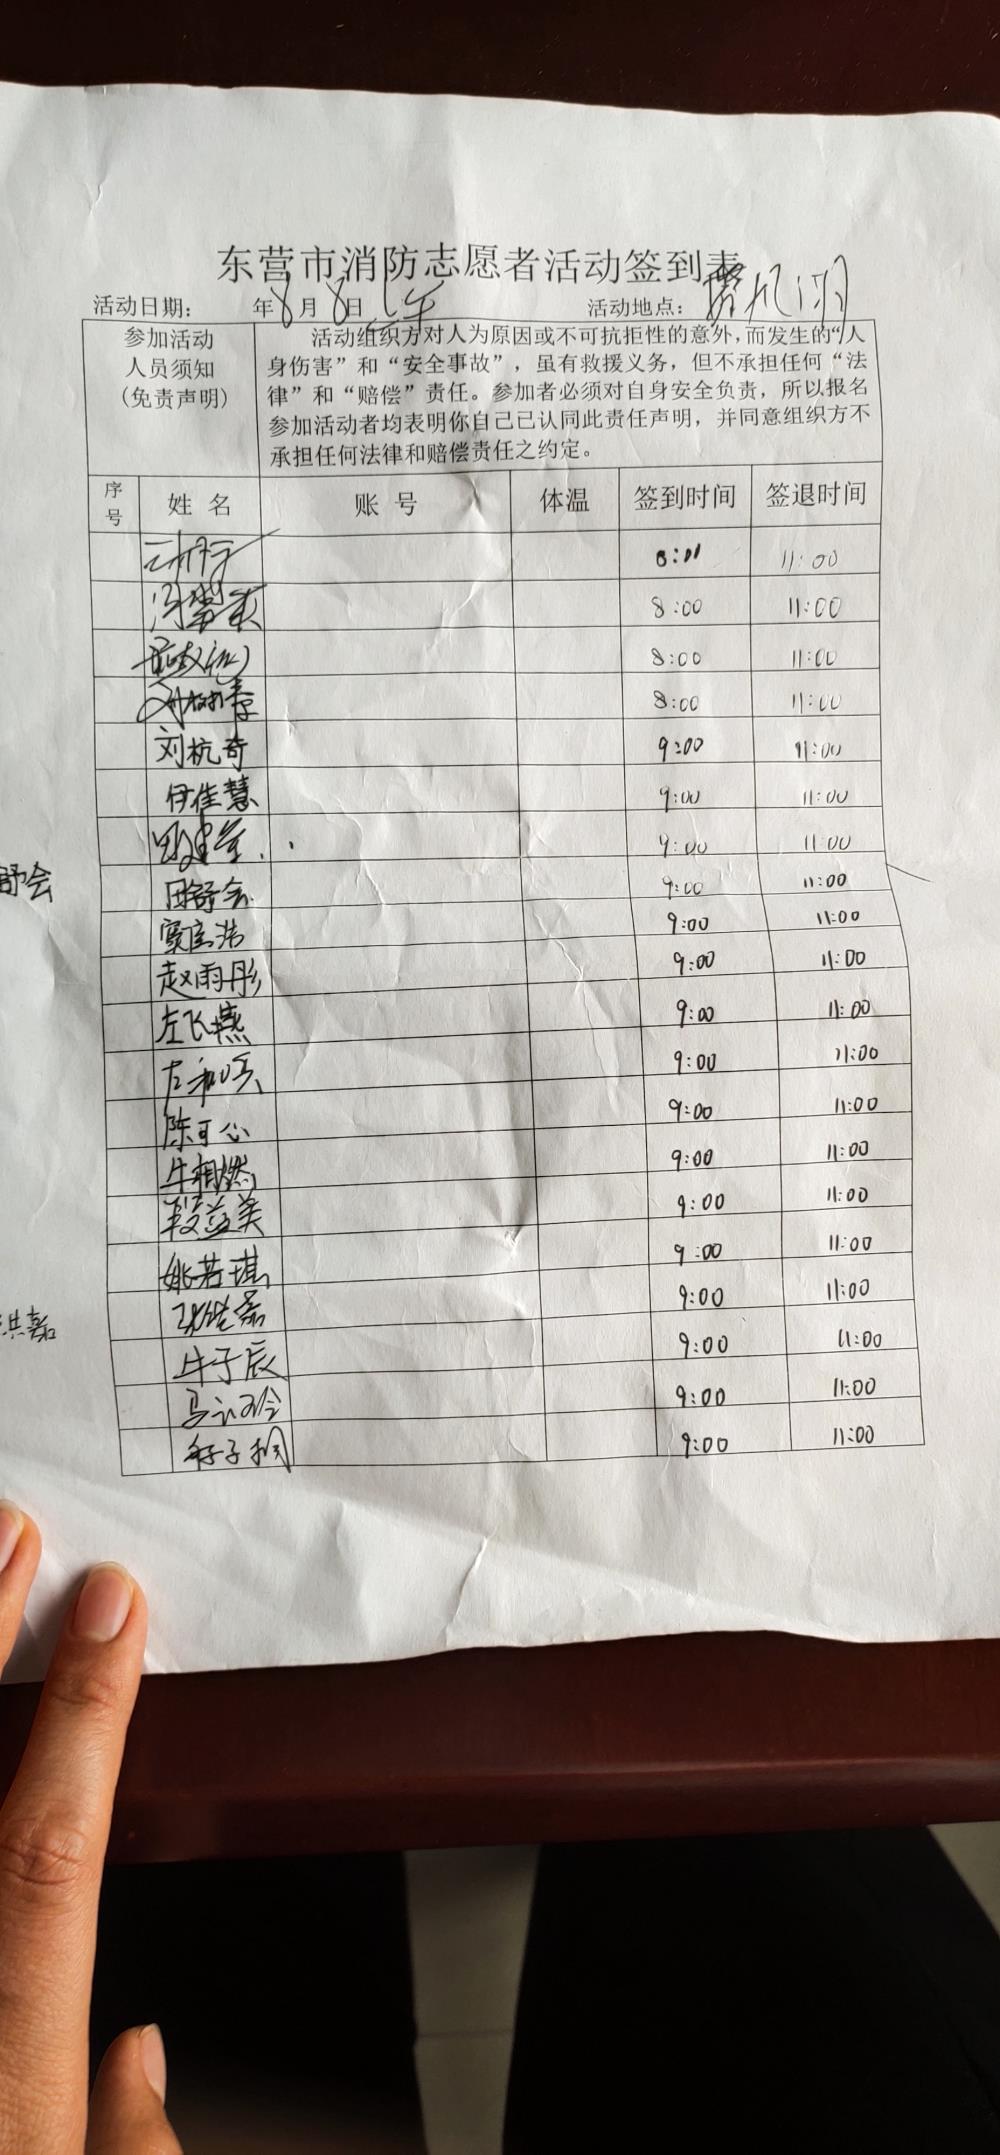 东营市消防志愿者活动签到表
活动日期： 年8月8日上午 活动地点：
参加活动人员须知（免责声明）
活动组织方对人为原因或不可抗拒性的意外，而发生的“人
身伤害”和“安全事故”，虽有救援义务，但不承担任何“法
律”和“赔偿”责任。参加者必须对自身安全负责，所以报名
参加活动者均表明你自己已认同此责任声明，并同意组织方不
承担任何法律和赔偿责任之约定。
序号 姓名 账号 体温 签到时间 签退时间
8:00 11:00
8:00 11:00
8:00 11:00
8:00 11:00
刘杭奇 9:00 11:00
伊佳慧 9:00 11:00
9:00 11:00
舒会
田舒会 9:00 11:00
9:00 11:00
赵雨彤 9:00 11:00
左飞燕 9:00 11:00
9:00 11:00
陈可心 9:00 11:00
牛相然 9:00 11:00
段益美 9:00 11:00
姚若琪 9:00 11:00
洪嘉
9:00 11:00
牛子辰 9:00 11:00
9:00 11:00
9:00 11:00